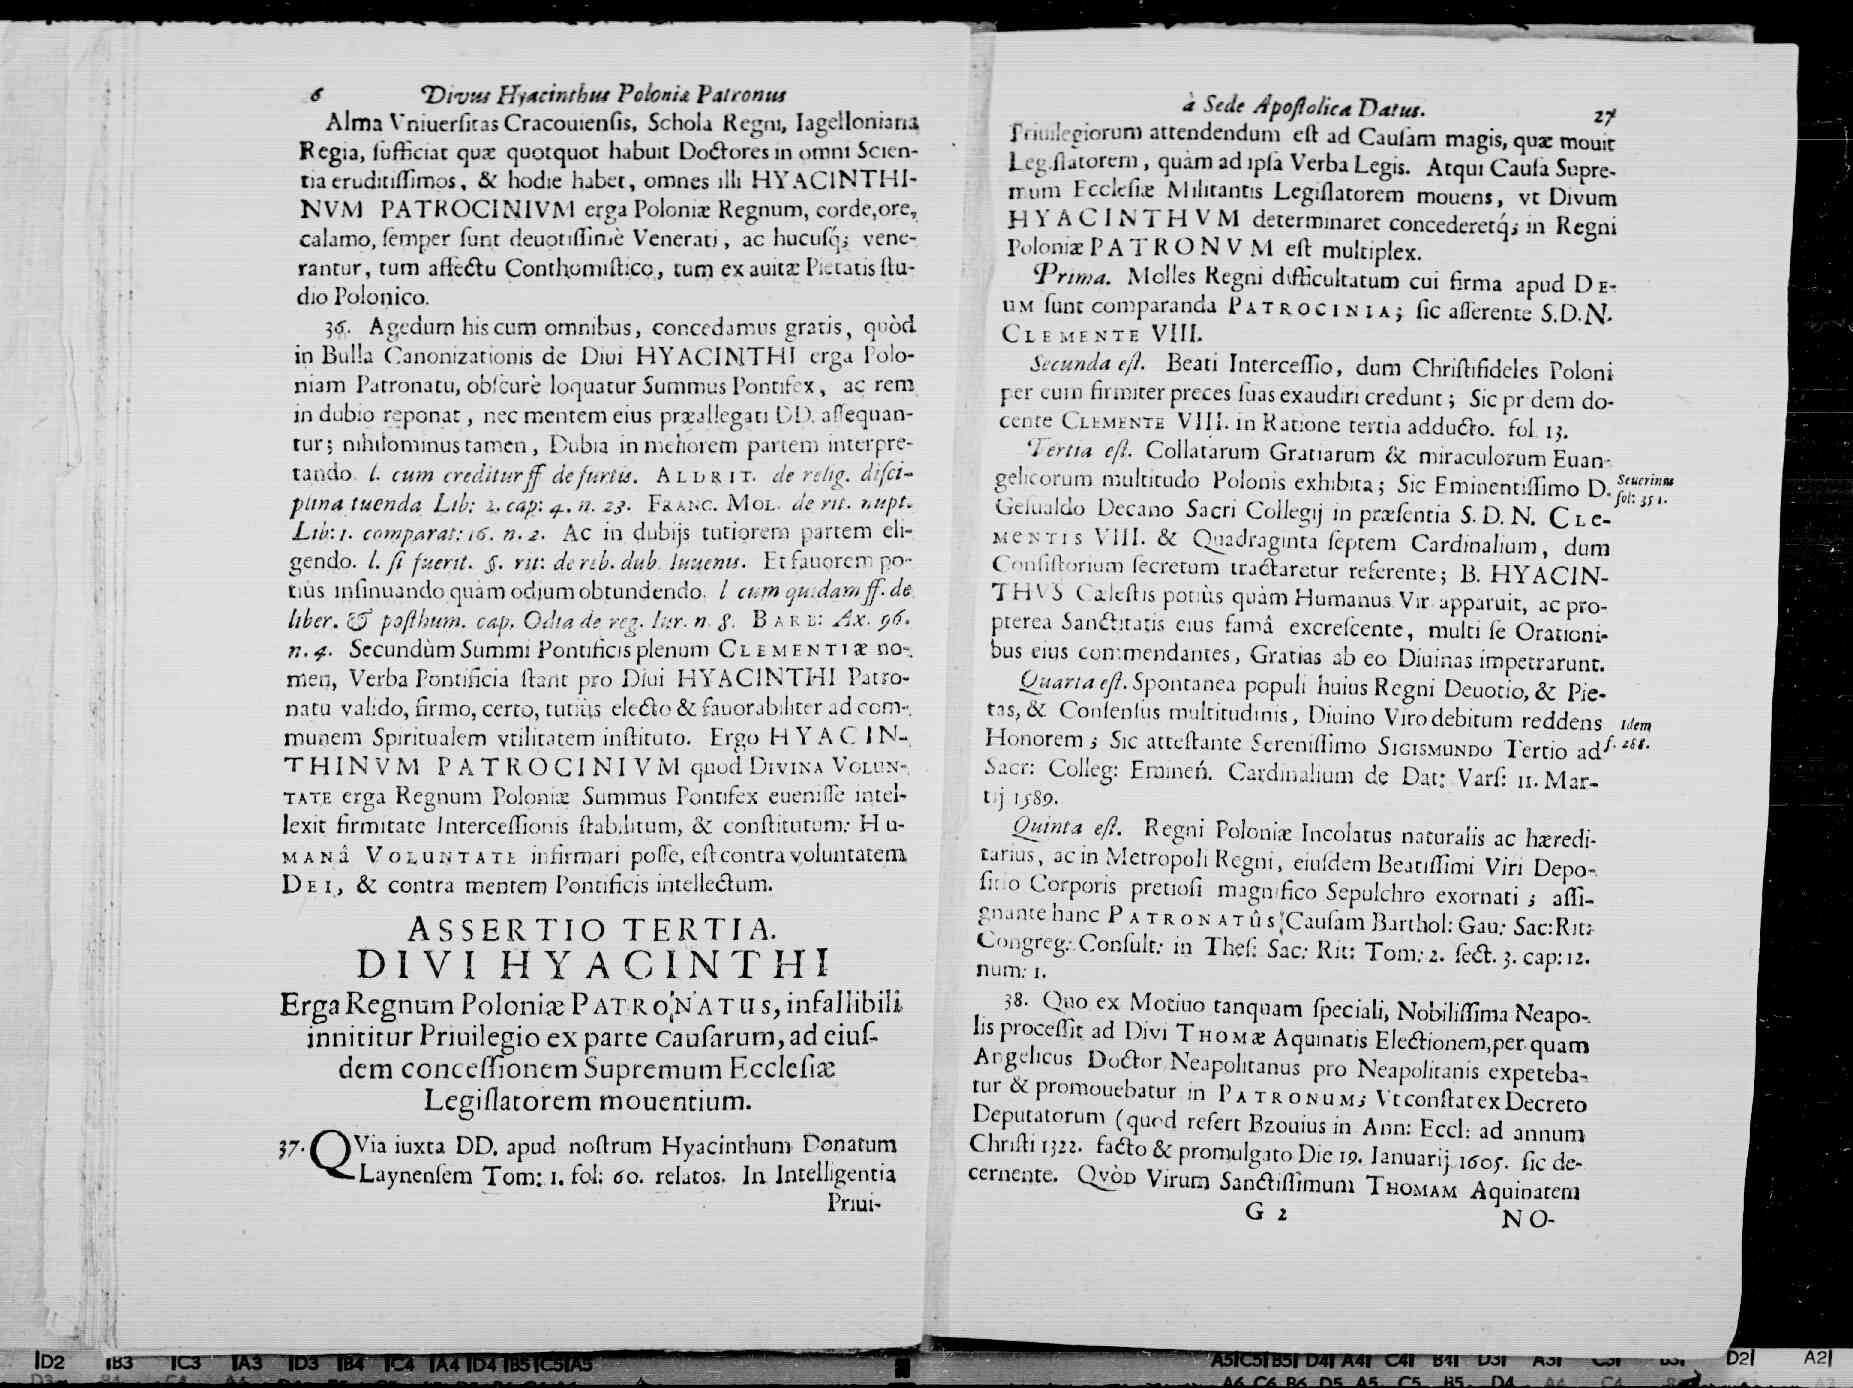 6 Divus Hyacinthus Poloniæ Patronus
Alma Vniuerſitas Cracouienſis, Schola Regni, Iagelloniana
Regia, ſufficiat quæ quotquot habuit Doctores in omni Scien-
tia eruditiſſimos, & hodie habet, omnes illi HYACINTHI-
NVM PATROCINIVM erga Poloniæ Regnum, corde, ore,
calamo, ſemper ſunt deuotiſſimè Venerati, ac hucuſq́; vene-
rantur, tum affectu Conthomiſtico, tum ex auitæ Pietatis ſtu-
dio Polonico.
36. Agedum his cum omnibus, concedamus gratis, quòd
in Bulla Canonizationis de Diui HYACINTHI erga Polo-
niam Patronatu, obſcurè loquatur Summus Pontifex, ac rem
in dubio reponat, nec mentem eius præallegati DD. aſſequan-
tur; nihilominus tamen, Dubia in meliorem partem interpre-
tando. l. cum creditur ff de furtis. ALDRIT. de relig. diſci-
plina tuenda Lib: 2. cap: 4. n. 23. FRANC. MOL. de rit. nupt.
Lib: 1. comparat: 16. n. 2. Ac in dubijs tutiorem partem eli-
gendo. l. ſi fuerit. §. rit: de reb. dub. Iuuenis. Et fauorem po-
tiùs inſinuando quàm odium obtundendo. l cum quidam ff. de
liber. & poſthum. cap. Odia de reg. Iur. n. 8. BARB: Ax. 96.
n. 4. Secundùm Summi Pontificis plenum CLEMENTIæ no-
men, Verba Pontificia ſtant pro Diui HYACINTHI Patro-
natu valido, firmo, certo, tutiùs electo & fauorabiliter ad com-
munem Spiritualem vtilitatem inſtituto. Ergo HYACIN-
THINVM PATROCINIVM quod DIVINA VOLUN-
TATE erga Regnum Poloniæ Summus Pontifex eueniſſe intel-
lexit firmitate Interceſſionis ſtabilitum, & conſtitutum: HU-
MANâ VOLUNTATE infirmari poſſe, eſt contra voluntatem
DEI, & contra mentem Pontificis intellectum.
ASSERTIO TERTIA.
DIVI HYACINTHI
Erga Regnum Poloniæ PATRONATUS, infallibili
innititur Priuilegio ex parte Cauſarum, ad eiuſ-
dem conceſſionem Supremum Eccleſiæ
Legiſlatorem mouentium.
37. QVia iuxta DD. apud noſtrum Hyacinthum Donatum
Laynenſem Tom: 1. fol: 60. relatos. In Intelligentia
Priui-
à Sede Apoſtolica Datus. 27
Priuilegiorum attendendum eſt ad Cauſam magis, quæ mouit
Legiſlatorem, quàm ad ipſa Verba Legis. Atqui Cauſa Supre-
mum Eccleſiæ Militantis Legiſlatorem mouens, vt Divum
HYACINTHVM determinaret concederetq́; in Regni
Poloniæ PATRONVM eſt multiplex.
Prima. Molles Regni difficultatum cui firma apud DE-
UM ſunt comparanda PATROCINIA; ſic aſſerente S.D.N.
CLEMENTE VIII.
Secunda eſt. Beati Interceſſio, dum Chriſtifideles Poloni
per eum firmiter preces ſuas exaudiri credunt; Sic pridem do-
cente CLEMENTE VIII. in Ratione tertia adducto. fol 13.
Tertia eſt. Collatarum Gratiarum & miraculorum Euan-
gelicorum multitudo Polonis exhibita; Sic Eminentiſſimo D.
Seuerinus
fol: 351.
Geſualdo Decano Sacri Collegij in præſentia S. D. N. CLE-
MENTIS VIII. & Quadraginta ſeptem Cardinalium, dum
Conſiſtorium ſecretum tractaretur referente; B. HYACIN-
THVS Cæleſtis potiùs quàm Humanus Vir apparuit, ac pro-
pterea Sanctitatis eius famâ excreſcente, multi ſe Orationi-
bus eius commendantes, Gratias ab eo Diuinas impetrarunt.
Quarta eſt. Spontanea populi huius Regni Deuotio, & Pie-
tas, & Conſenſus multitudinis, Diuino Viro debitum reddens
Idem
f. 268.
Honorem; Sic atteſtante Sereniſſimo SIGISMUNDO Tertio ad
Sacr: Colleg: Emineń. Cardinalium de Dat: Varſ: 11. Mar-
tij 1589.
Quinta eſt. Regni Poloniæ Incolatus naturalis ac hæredi-
tarius, ac in Metropoli Regni, eiuſdem Beatiſſimi Viri Depo-
ſitio Corporis pretioſi magnifico Sepulchro exornati; aſſi-
gnante hanc PATRONATûS Cauſam Barthol: Gau: Sac: Rit:
Congreg: Conſult: in Theſ: Sac: Rit: Tom: 2. ſect. 3. cap: 12.
num: 1.
38. Quo ex Motiuo tanquam ſpeciali, Nobiliſſima Neapo-
lis proceſſit ad Divi THOMæ Aquinatis Electionem, per quam
Angelicus Doctor Neapolitanus pro Neapolitanis expeteba-
tur & promouebatur in PATRONUM; Vt conſtat ex Decreto
Deputatorum (quod refert Bzouius in Ann: Eccl: ad annum
Chriſti 1322. facto & promulgato Die 19. Ianuarij 1605. ſic de-
cernente. QVÒD Virum Sanctiſſimum THOMAM Aquinatem
G 2 NO-
D2 B3 C3 A3 D3 B4 C4 A4 D4 B5 C5 A5
A5 C5 B5 D4 A4 C4 B4 D3 A3 C3 B3 D2 A2
A6 C6 B6 D5 A5 C5 B5 D4 A4 C4